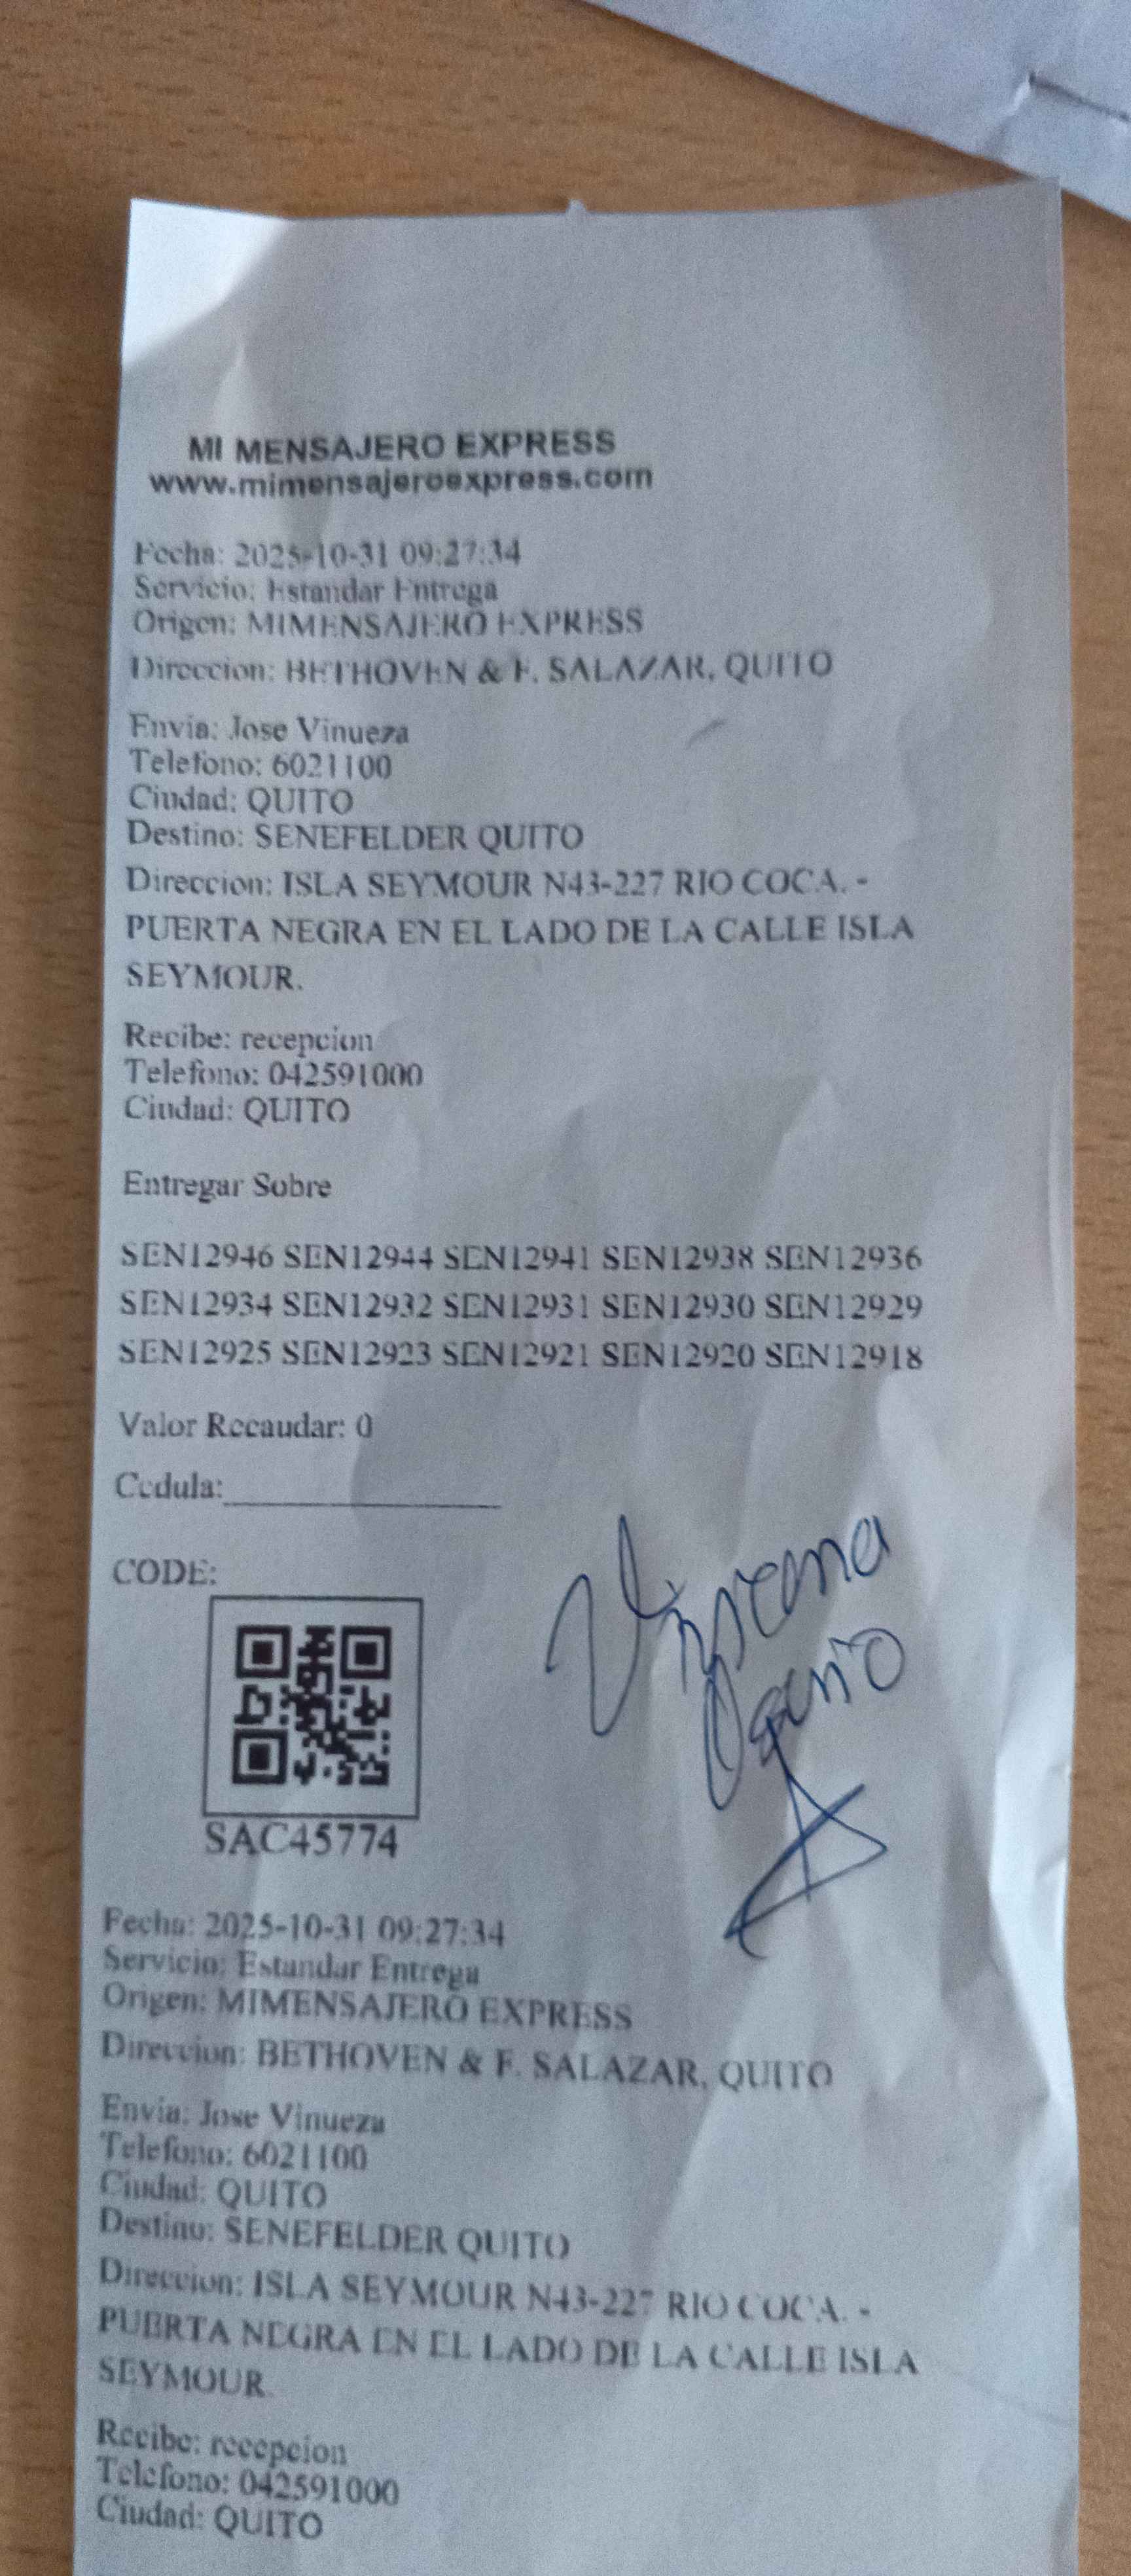 MI MENSAJERO EXPRESS
www.mimensajeroexpress.com
Fecha: 2025-10-31 09:27:34
Servicio: Estandar Entrega
Origen: MIMENSAJERO EXPRESS
Direccion: BETHOVEN & F. SALAZAR, QUITO
Envia: Jose Vinueza
Telefono: 6021100
Ciudad: QUITO
Destino: SENEFELDER QUITO
Direccion: ISLA SEYMOUR N43-227 RIO COCA. -
PUERTA NEGRA EN EL LADO DE LA CALLE ISLA
SEYMOUR.
Recibe: recepcion
Telefono: 042591000
Ciudad: QUITO
Entregar Sobre
SEN12946 SEN12944 SEN12941 SEN12938 SEN12936
SEN12934 SEN12932 SEN12931 SEN12930 SEN12929
SEN12925 SEN12923 SEN12921 SEN12920 SEN12918
Valor Recaudar: 0
Cedula:
CODE:
SAC45774
Fecha: 2025-10-31 09:27:34
Servicio: Estandar Entrega
Origen: MIMENSAJERO EXPRESS
Direccion: BETHOVEN & F. SALAZAR, QUITO
Envia: Jose Vinueza
Telefono: 6021100
Ciudad: QUITO
Destino: SENEFELDER QUITO
Direccion: ISLA SEYMOUR N43-227 RIO COCA. -
PUERTA NEGRA EN EL LADO DE LA CALLE ISLA
SEYMOUR.
Recibe: recepcion
Telefono: 042591000
Ciudad: QUITO